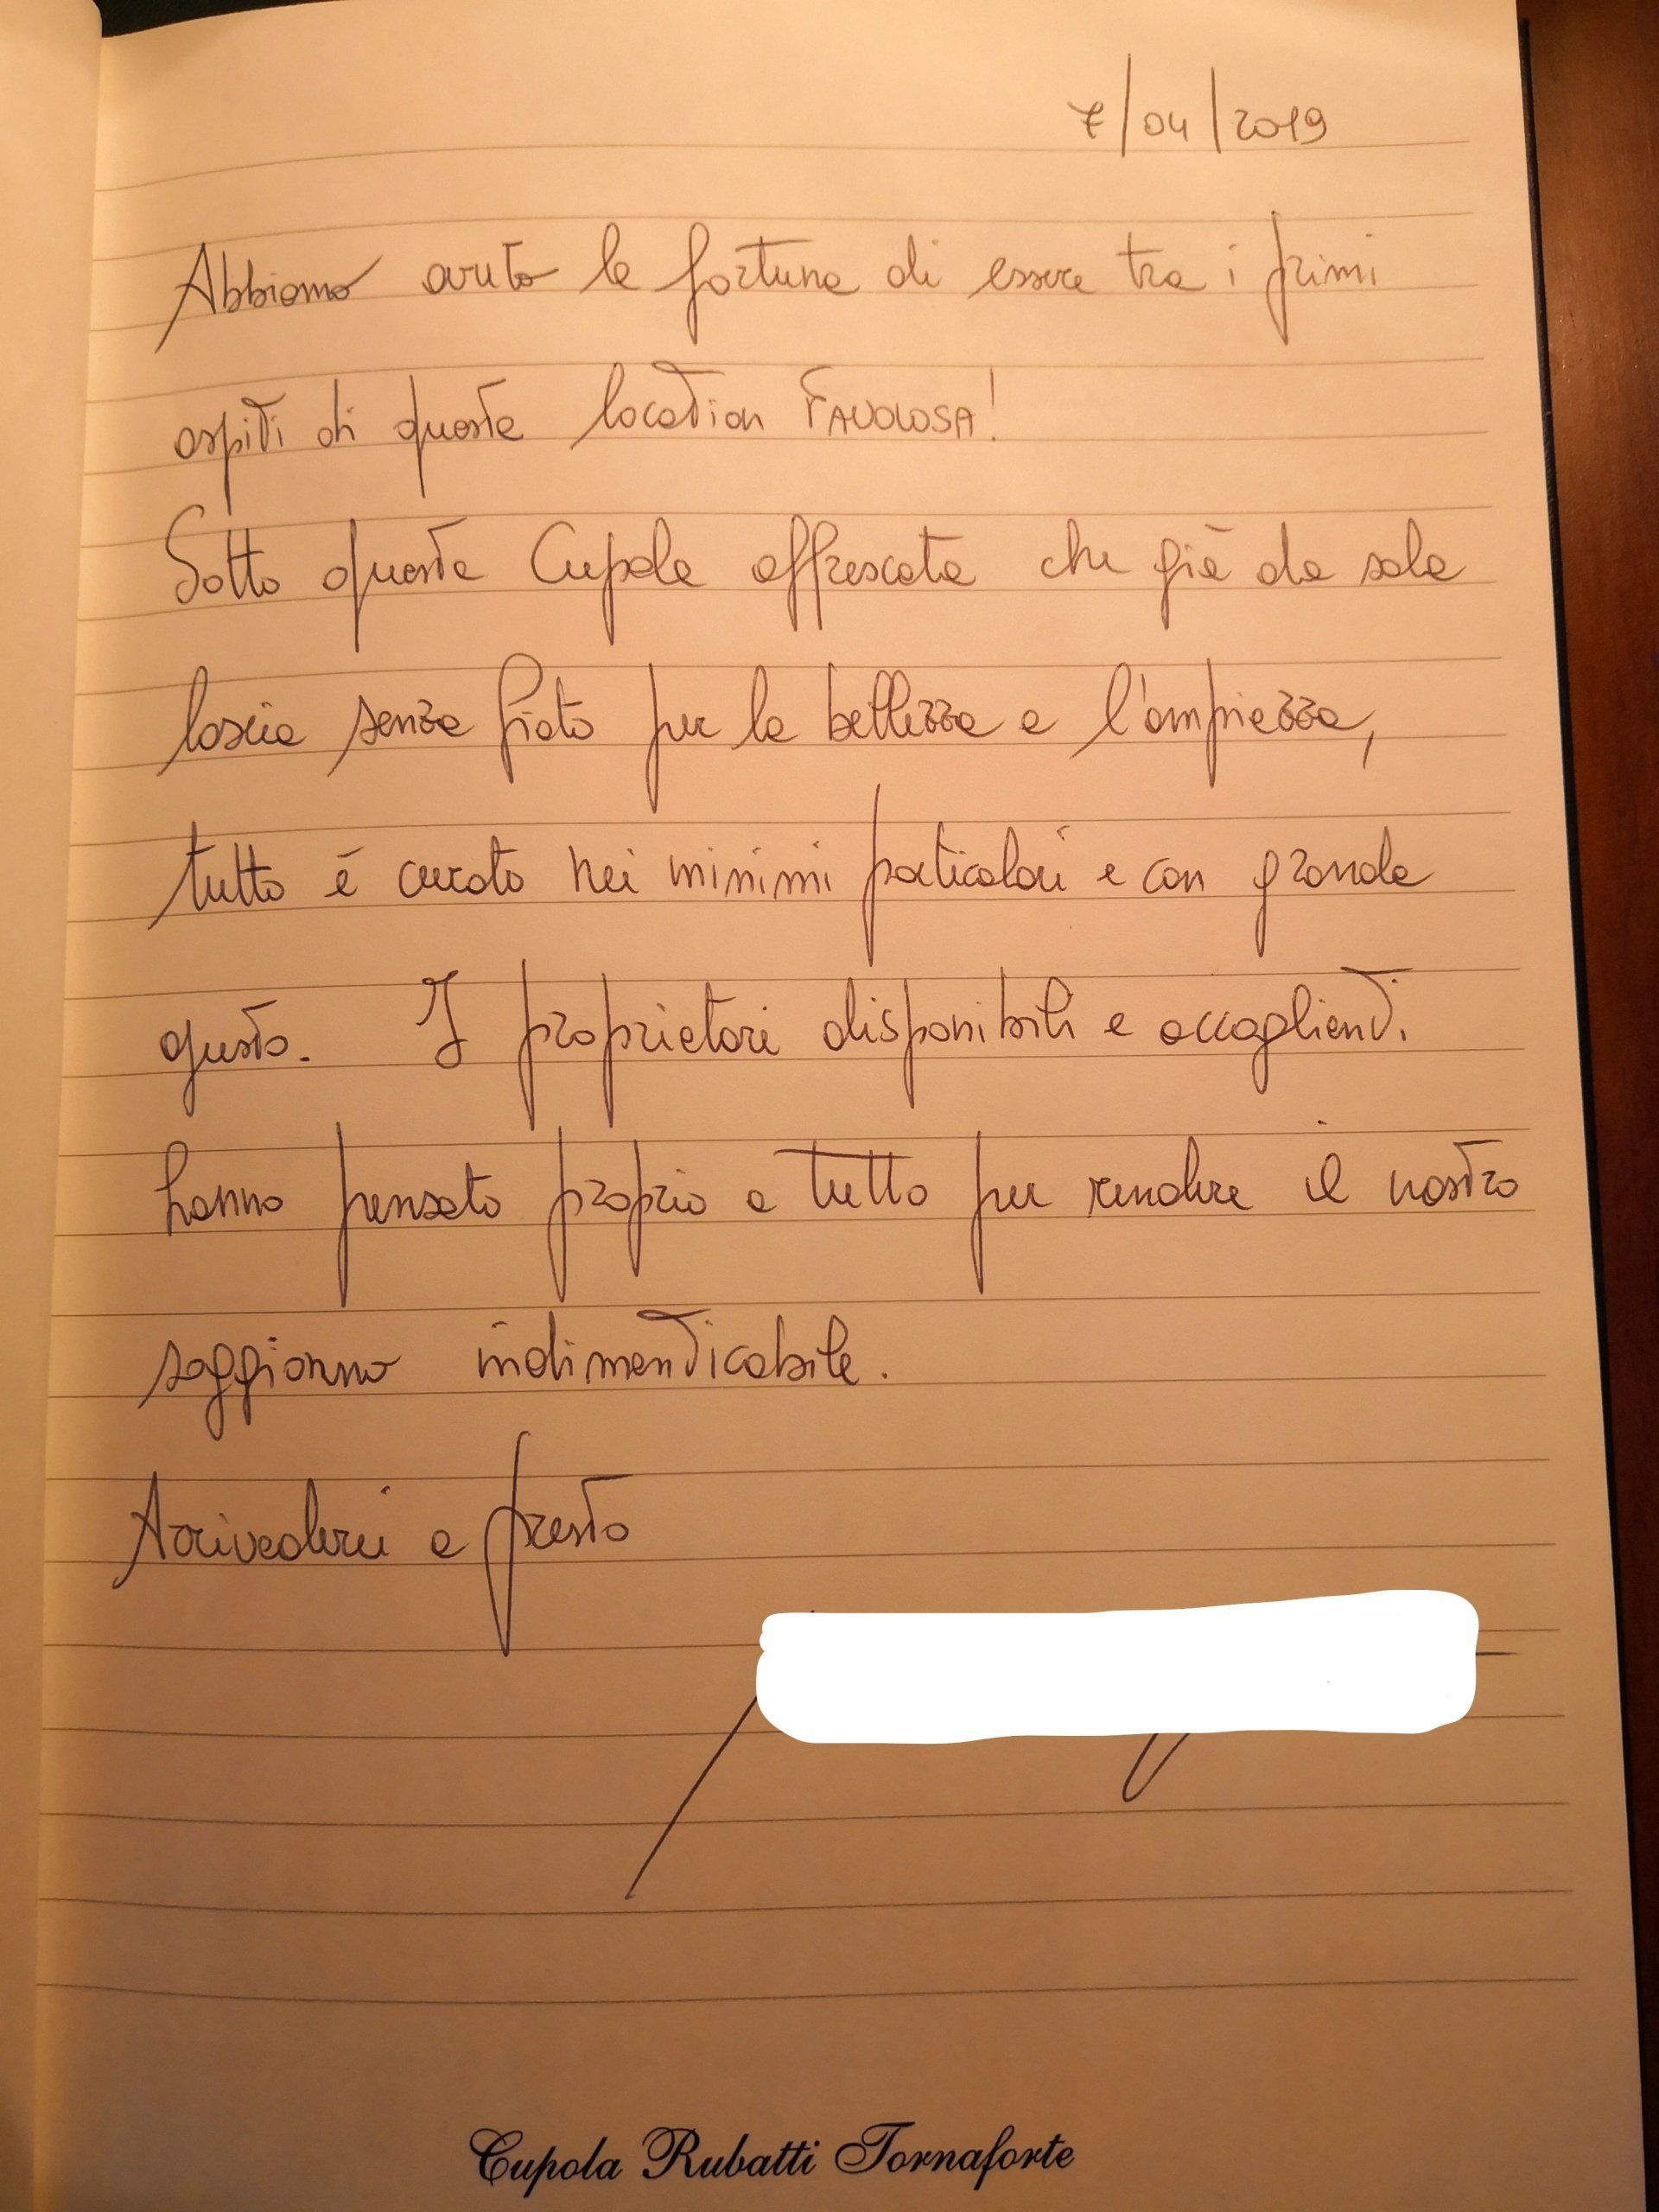 7/04/2019
Abbiamo avuto la fortuna di essere tra i primi
ospiti di questa location FAVOLOSA!
Sotto questa Cupola affrescata che già da sola
lascia senza fiato per la bellezza e l'ampiezza,
tutto è curato nei minimi particolari e con grande
gusto. I proprietari disponibili e accoglienti.
hanno pensato proprio a tutto per rendere il nostro
soggiorno indimenticabile.
Arrivederci a presto
Cupola Rubatti Tornaforte